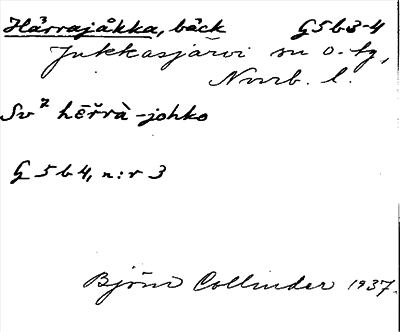 Härrajåkka, bäck G5b3-4
Jukkasjärvi sn o. tg,
Norrb. l.
Sv⁷ hēr̆rà-johko
G5b4, n:r 3
Björn Collinder 1937.